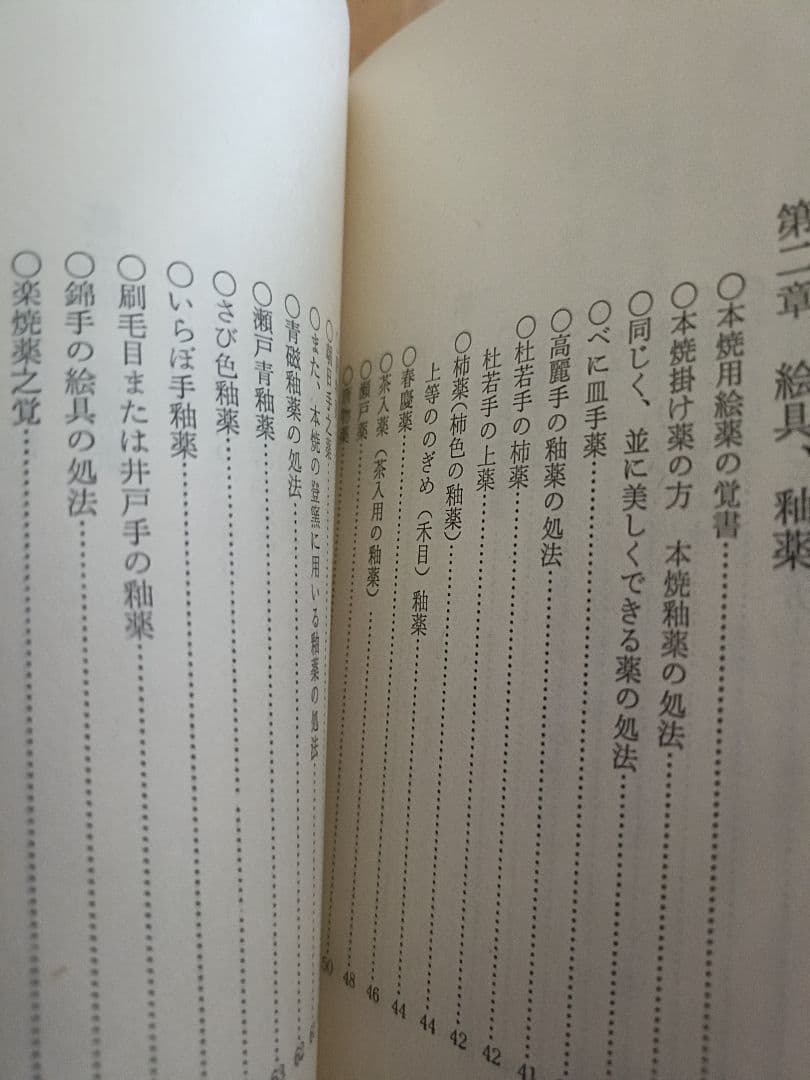 第二章　絵具、釉薬
〇本焼用絵薬の覚書……
〇本焼掛け薬の方　本焼釉薬の処法……
〇同じく、並に美しくできる薬の処法……
〇べに皿手薬……
〇高麗手の釉薬の処法……41
〇杜若手の柿薬……42
杜若手の上薬……42
〇柿薬(柿色の釉薬)……44
上等ののぎめ（禾目）釉薬……44
〇春慶薬……46
〇茶入薬（茶入用の釉薬）……48
〇瀬戸薬……50
〇朝日手之薬……
〇また、本焼の登窯に用いる釉薬の処法……
〇青磁釉薬の処法……62
〇瀬戸青釉薬……63
〇さび色釉薬……
〇いらぼ手釉薬……
〇刷毛目または井戸手の釉薬……
〇錦手の絵具の処法……
〇楽焼薬之覚……